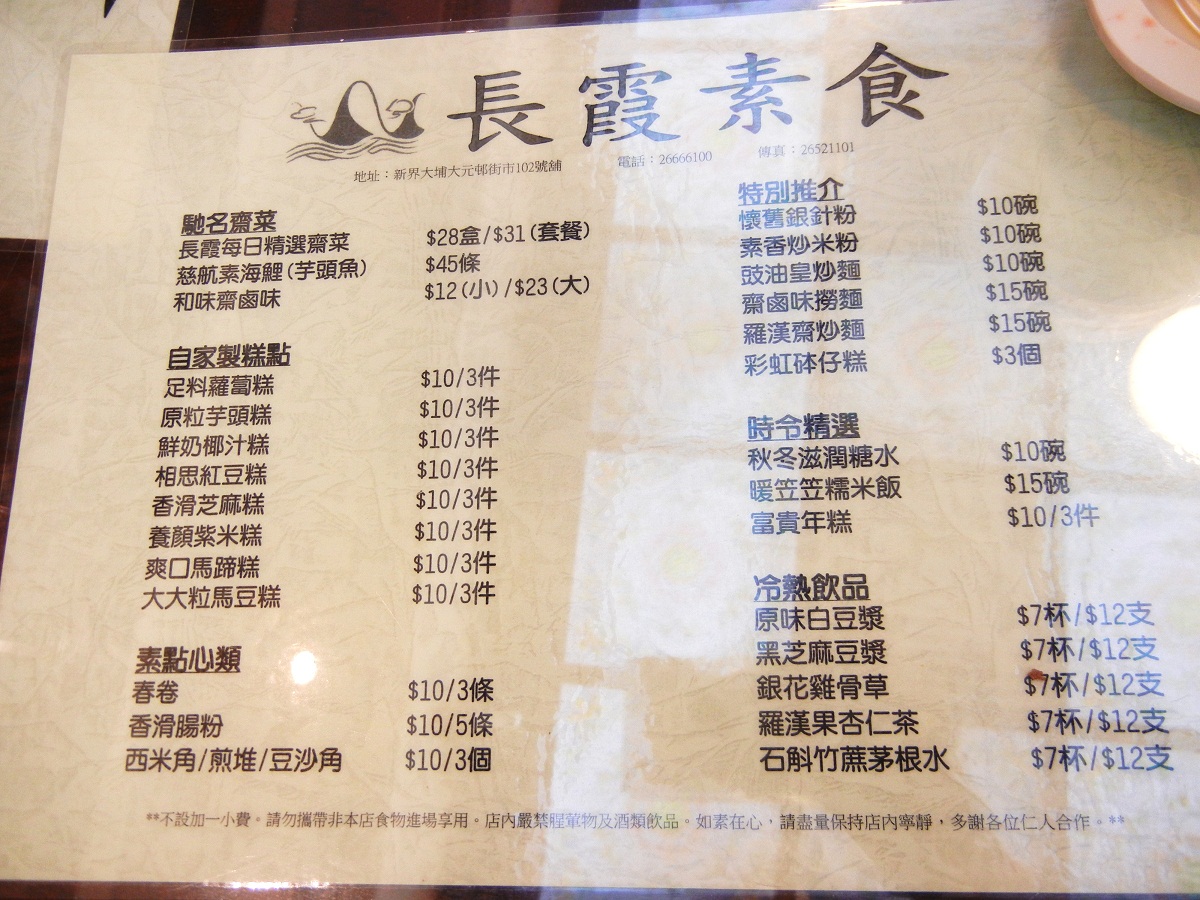 長霞素食
地址：新界大埔大元邨街市102號舖 電話：26666100 傳真：26521101
馳名齋菜
長霞每日精選齋菜 $28盒/$31(套餐)
慈航素海鯉(芋頭魚) $45條
和味齋鹵味 $12(小)/$23(大)
自家製糕點
足料蘿蔔糕 $10/3件
原粒芋頭糕 $10/3件
鮮奶椰汁糕 $10/3件
相思紅豆糕 $10/3件
香滑芝麻糕 $10/3件
養顏紫米糕 $10/3件
爽口馬蹄糕 $10/3件
大大粒馬豆糕 $10/3件
素點心類
春卷 $10/3條
香滑腸粉 $10/5條
西米角/煎堆/豆沙角 $10/3個
特別推介
懷舊銀針粉 $10碗
素香炒米粉 $10碗
豉油皇炒麵 $10碗
齋鹵味撈麵 $15碗
羅漢齋炒麵 $15碗
彩虹砵仔糕 $3個
時令精選
秋冬滋潤糖水 $10碗
暖笠笠糯米飯 $15碗
富貴年糕 $10/3件
冷熱飲品
原味白豆漿 $7杯/$12支
黑芝麻豆漿 $7杯/$12支
銀花雞骨草 $7杯/$12支
羅漢果杏仁茶 $7杯/$12支
石斛竹蔗茅根水 $7杯/$12支
**不設加一小費。請勿攜帶非本店食物進場享用。店內嚴禁腥葷物及酒類飲品。如素在心，請盡量保持店內寧靜，多謝各位仁人合作。**